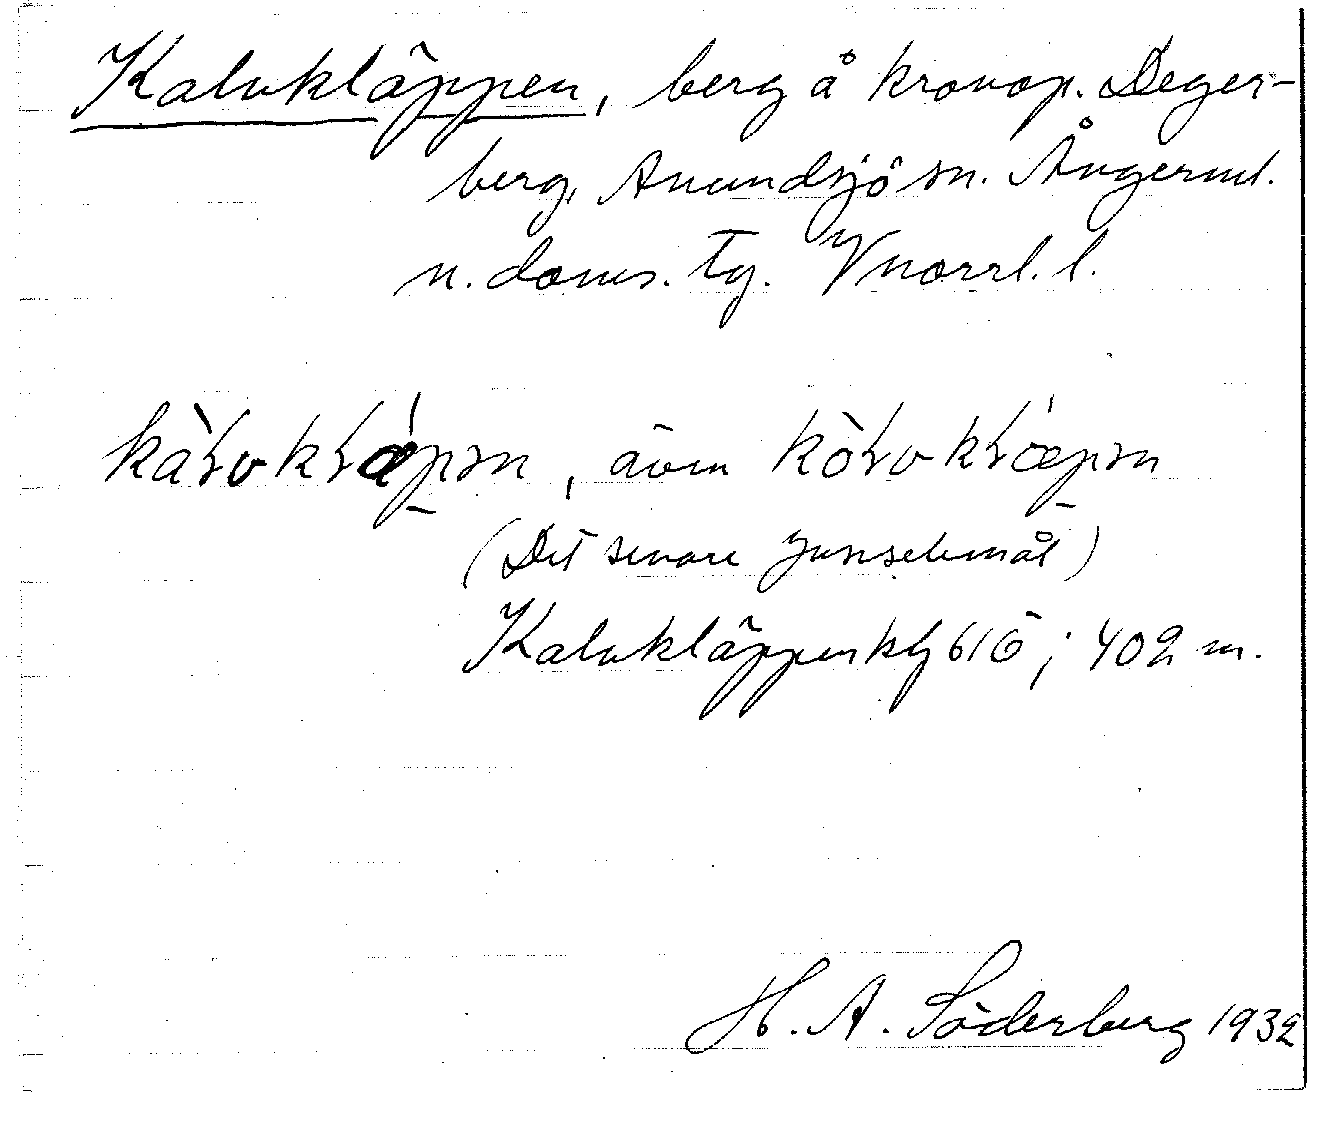 Kalvkläppen, berg å kronop. Deger-
berg, Anundsjö sn. Ångerml.
n. doms. tg. Vnorrl. l.
kàɽvkɽæ̀pən, även kòɽvkɽæpən
(Det senare Junselemål)
Kalvkläppen kbl 61Ö; 402 m.
H. A. Söderberg 1932